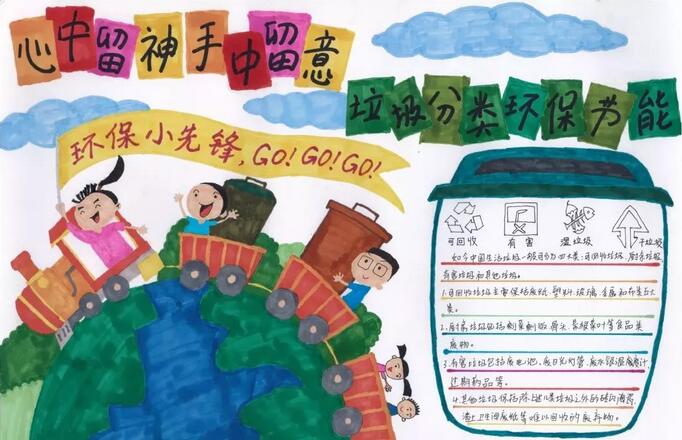 心中留神手中留意
垃圾分类环保节能
环保小先锋，GO！GO！GO！
可回收 有害 湿垃圾 干垃圾
如今中国生活垃圾一般可分为四大类：可回收垃圾、厨余垃圾、
有害垃圾和其他垃圾。
1.可回收垃圾主要包括废纸、塑料、玻璃、金属和布料五大
类。
2.厨余垃圾包括剩菜剩饭、骨头、菜根菜叶等食品类
废物。
3.有害垃圾包括废电池、废日光灯管、废水银温度计、
过期药品等。
4.其他垃圾包括除上述几类垃圾之外的砖瓦陶瓷、
渣土、卫生间废纸等难以回收的废弃物。